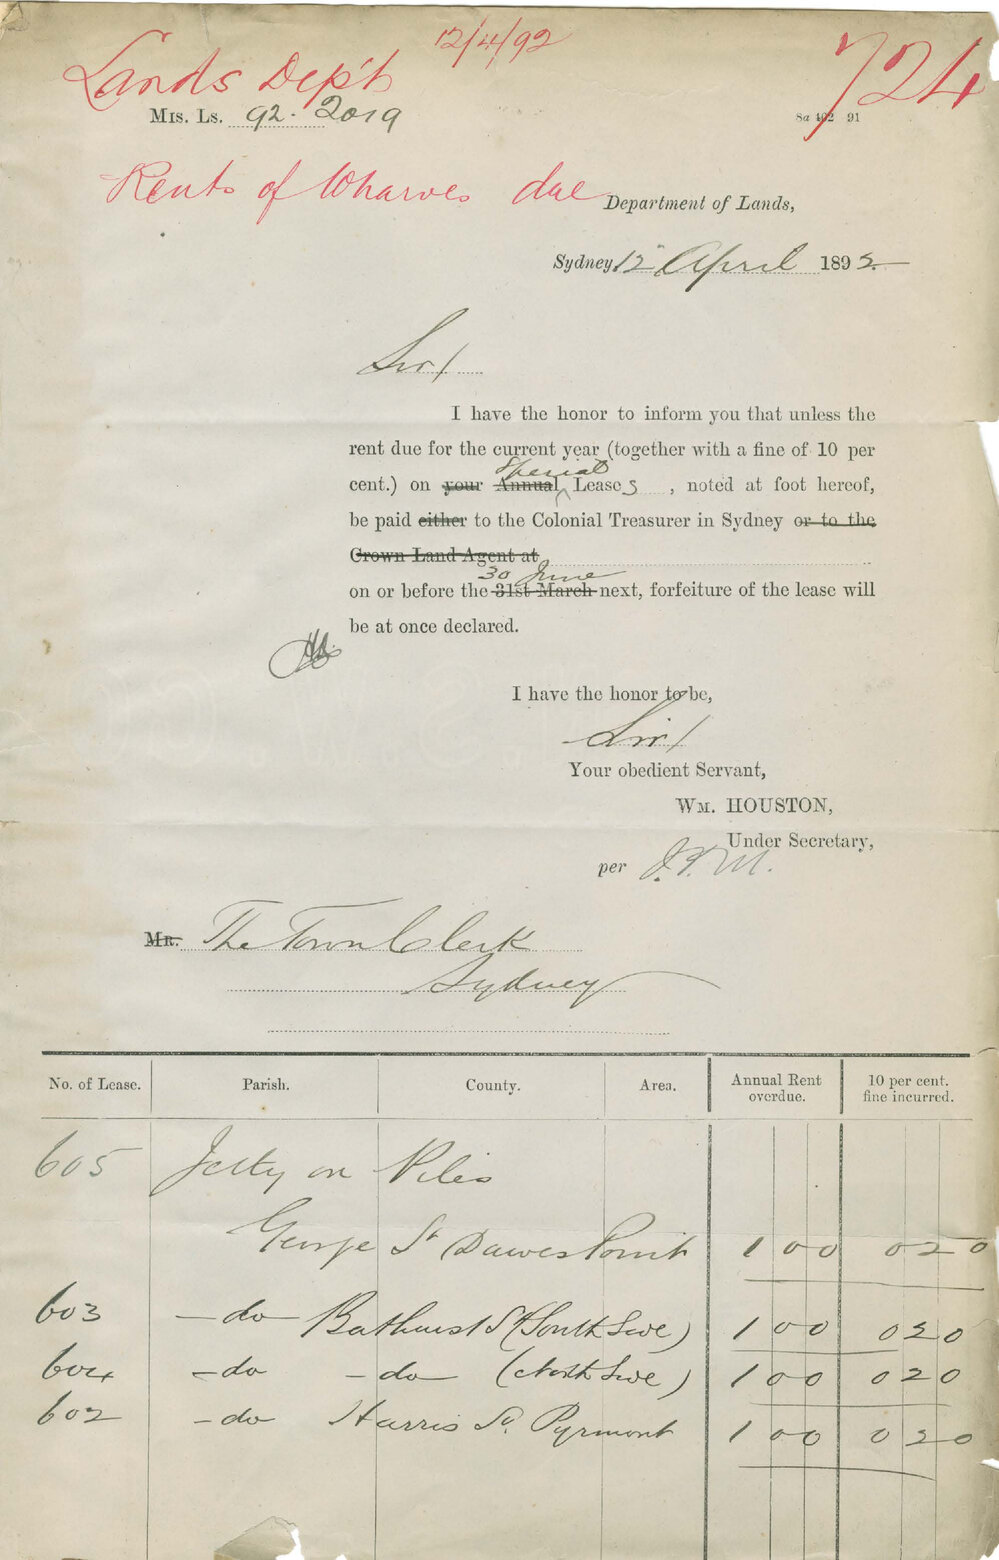 12/4/92
Lands Dep't
724
Mis. Ls. 92. 2019
8a 402 91
Rents of Wharves due
Department of Lands,
Sydney 12 April 1892
Sir/
I have the honor to inform you that unless the
rent due for the current year (together with a fine of 10 per
Special
cent.) on your Annual Leases, noted at foot hereof,
be paid either to the Colonial Treasurer in Sydney or to the
Crown Land Agent at
30 June
on or before the 31st March next, forfeiture of the lease will
be at once declared.
I have the honor to be,
Sir/
Your obedient Servant,
Wm. HOUSTON,
Under Secretary,
per
Mr. The Town Clerk
Sydney
No. of Lease. Parish. County. Area. Annual Rent overdue. 10 per cent. fine incurred.
605 Jetty on Piles
George St Dawes Point 1 0 0 0 2 0
603 - do Bathurst St (South Side) 1 0 0 0 2 0
604 - do - do (North Side) 1 0 0 0 2 0
602 - do Harris St. Pyrmont 1 0 0 0 2 0